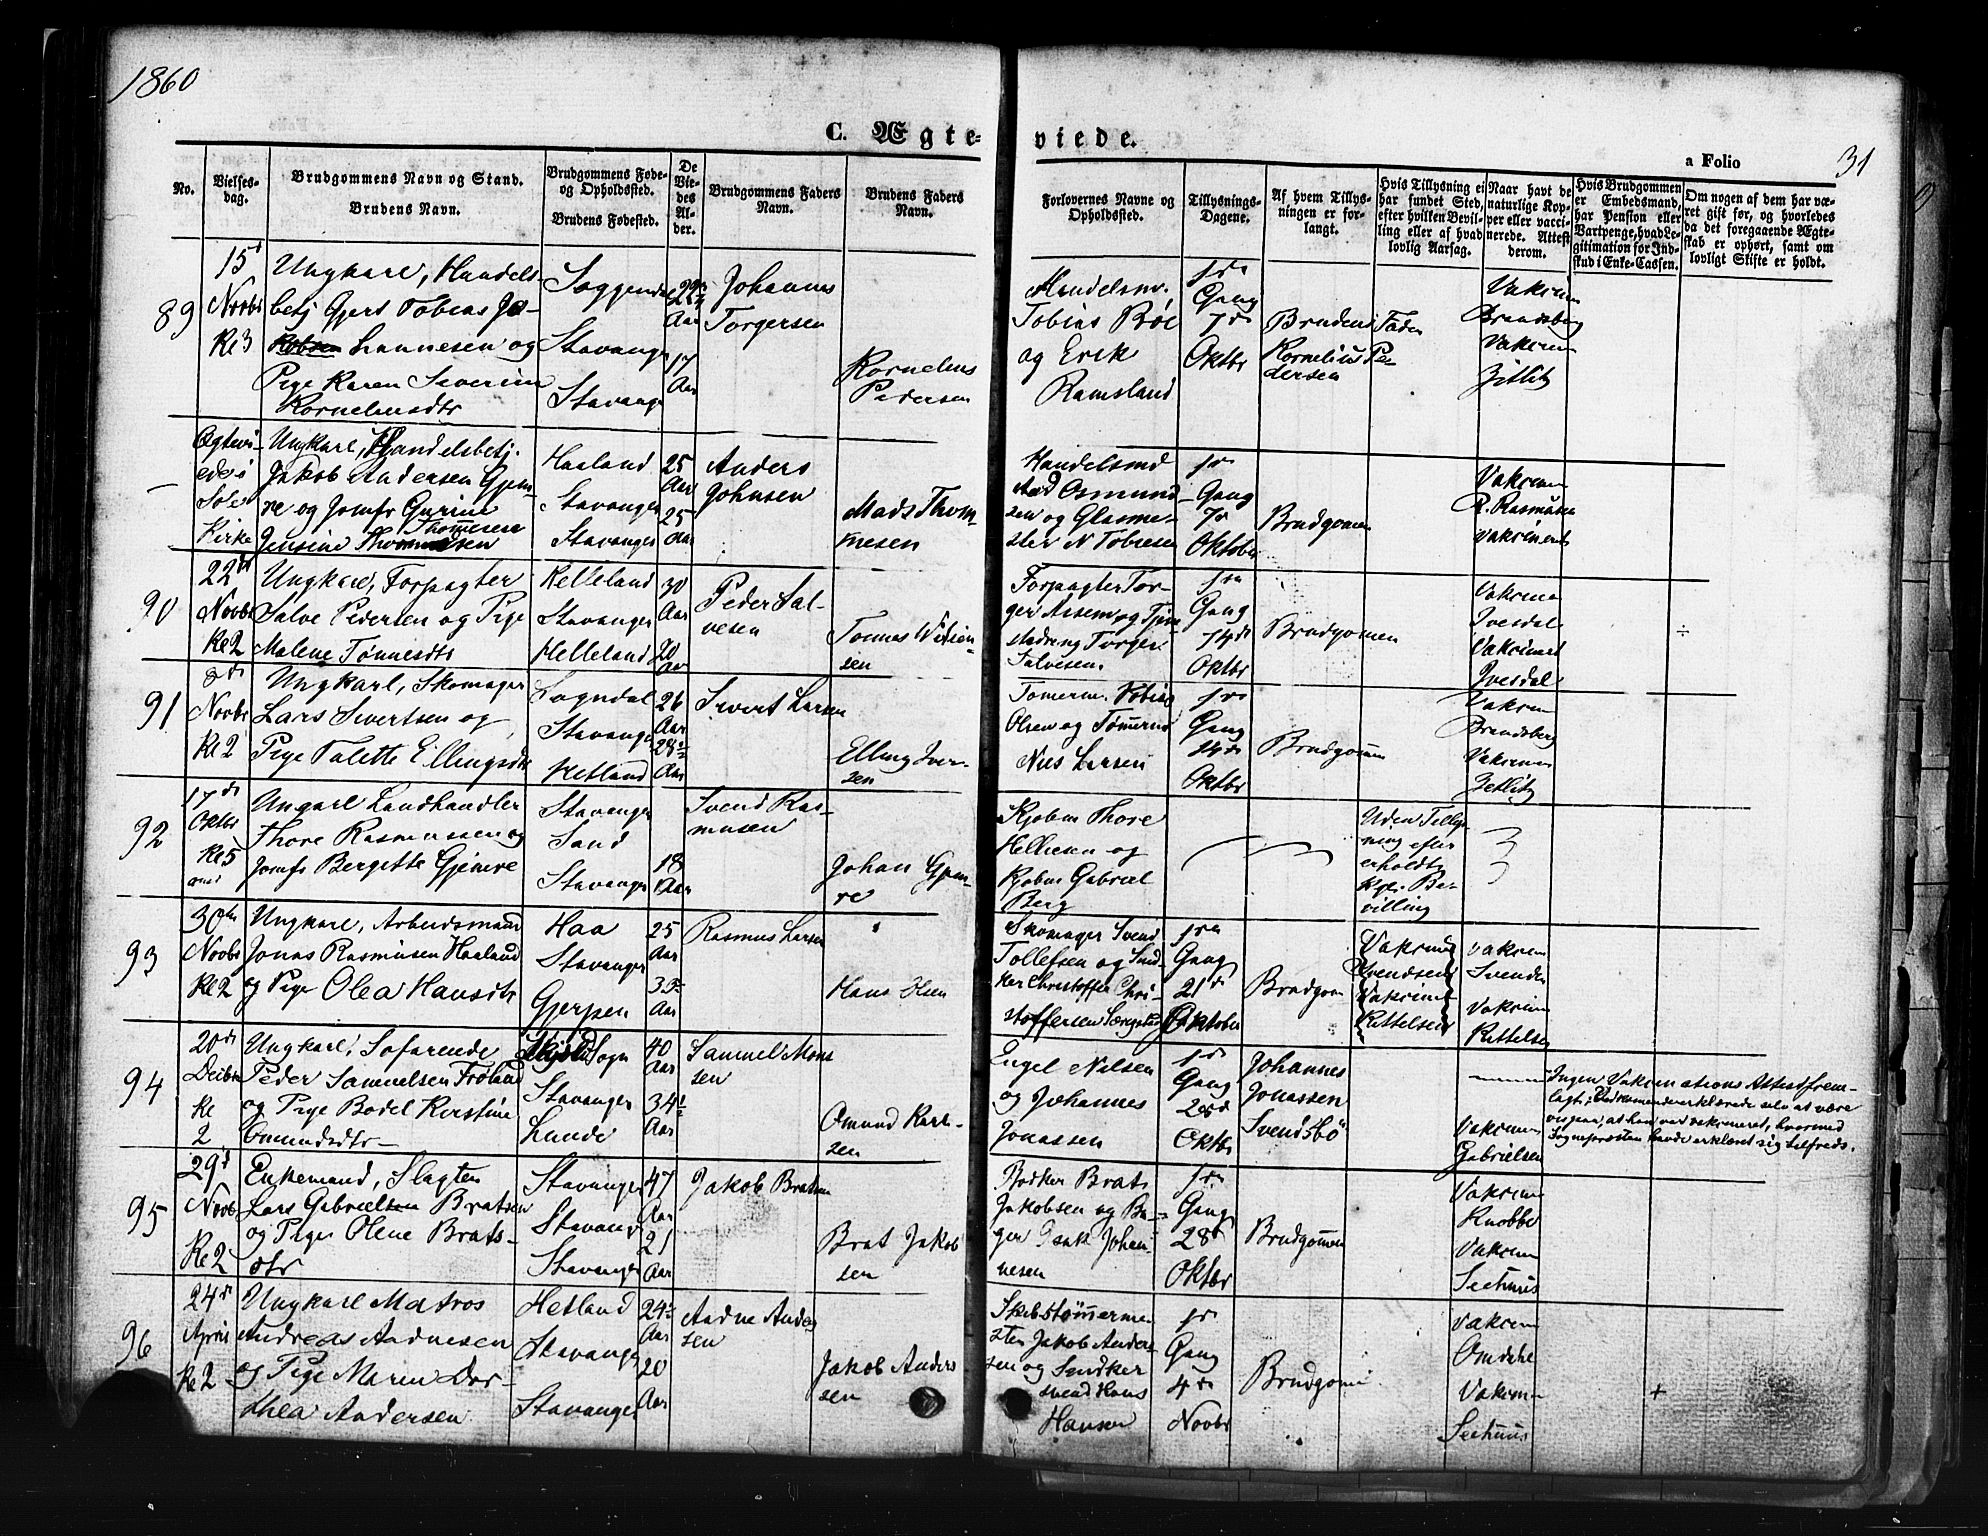 1860
C. Ægte-
viede.
a Folio
31
No.
Vielses-
dag.
Brudgommens Navn og Stand.
Brudens Navn.
Brudgommens Føde-
og Opholdssted.
Brudens Fødested.
De
Vie-
des
Al-
der.
Brudgommens Faders
Navn.
Brudens Faders
Navn.
Forlovernes Navne og
Opholdssted.
Tillysnings-
Dagene.
Af hvem Tillys-
ningen er for-
langt.
Hvis Tillysning ei
har fundet Sted,
efter hvilken Bevil-
ling eller af hvad
lovlig Aarsag.
Naar havt de
naturlige Kop-
per eller vacci-
nerede. Attest
derom.
Hvis Brudgommen
er Embedsmand,
har Pension eller
Vartpenge, hvad Le-
gitimation for Ind-
skud i Enke-Cassen.
Om nogen af dem har væ-
ret gift før, og hvorledes
da det foregaaende Ægte-
skab er ophørt, samt om
lovligt Skifte er holdt.
89
15d
Novbr
Kl 3
Ungkarl, Handels-
betj Gjert Tobias Jo-
hannesen og
Pige Karen Severine
Korneliusdtr
Soggendal
Stavanger
Stavanger
Aar
17
Aar
Johannes
Torgersen
Kornelius
Pedersen
Handelsm.
Tobias Bøe
og Erik
Ramsland
1ste
Gang
7de
Oktbr
Brudens Fader
Kornelius Pe-
dersen
Vakcin
Brandsberg
Vakcin
Zetlitz
Ægtevi-
ede i
Sole
Kirke
Ungkarl, Handelsbetj.
Jakob Andersen Gjem-
re og Jomfr Gurine
Jensine Thommesen
Haaland
Stavanger
Stavanger
25
Aar
25
Aar
Anders
Johnsen
Mads Thom-
mesen
Handelsmd
Osmund-
sen og Glasme-
ster N Tobiesen
1ste
Gang
7de
Oktober
Brudgomen
Vakcin
R. Rasmusen
vakcineret
90
22d
Novbr
Kl 2
Ungkarl, Forpagter
Salve Pedersen og Pige
Malene Tønnesdtr
Helleland
Stavanger
Helleland
30
Aar
20
Aar
Peder Sal-
vesen
Tønnes
sen
Forpagter Tor-
ger Assem og Tjene-
stedreng Torger
Salvesen.
1ste
Gang
14de
Oktbr
Brudgomen
Vakcine
Ivesdal
Vakcineret
Ivesdal
÷
91
Novbr
Kl 2
Ungkarl, Skomager
Lars Sivertsen og
Pige Talette Ellingsdtr
Sogndal
Stavanger
Hetland
26
Aar
28½
Aar
Sivert Larsen
Elling Iver-
sen
Tømerm. Tobias
Olsen og Tømermd
Niels Larsen
1ste
Gang
14de
Oktbr
Brudgomen
Vakcin
Brandsberg
Vakcin
Zetlitz
92
17de
Oktbr
Kl 5
Ungkarl Landhandler
Thore Rasmussen og
Jomfr Bergitte Gjemre
Stavanger
Sand
Stavanger
18
Aar
Svend Ras-
musen
Johan Gjem-
re
Kjøbm Thore
Helliesen og
Kjøbm Gabriel
Berg
Uden Tillys-
ning efter
erholdt
Kgl. Be-
villing
93
30te
Novbr
Kl 2
Ungkarl, Arbeidsmand
Jonas Rasmusen Haaland
og Pige Olea Hansdtr
Haa
Stavanger
Gjerpen
25
Aar
Aar
Rasmus Larsen
Hans Olsen
Skomager Svend
Tollefsen og Sned-
ker Christoffer Chri-
stoffersen
1ste
Gang
21de
Oktober
Brudgom
Vakcineret
Svendsen
Vakcineret
Kittelsen
vakcin
Svendsen
Vakcin
Kittelsen
94
20de
Kl
2
Ungkarl, Søfarende
Peder Samuelsen Frøland
og Pige Bodel Kirstine
Omundsdtr
Skjold Sogn
Stavanger
Lunde
40
Aar
34½
Aar
Samuel Mons-
sen
Omund Karl-
sen
Engel Nilsen
og Johannes
Jonassen
1ste
Gang
28de
Oktbr
Johannes
Jonassen
Svendsbö
Vakcin
Gabrielsen
Ingen Vakcinations Attest frem-
lagt; Vedkommende erklærede selv at være
vis paa, at han var vakcineret, hvormed
Sognepræsten havde erklæret sig tilfreds.
95
29d
Novbr
Kl 2
Enkemand, Slagter
Lars Gabrielsen Bratsen
og Pige Olene Brats-
dtr
Stavanger
Stavanger
Stavanger
47
Aar
21
Aar
Jakob Bratsen
Brat Jakob
sen
Bødker Brat
Jakobsen og Bø-
ger Isak Johan-
nesen
1ste
Gang
28d
Oktbr
Brudgomen
Vakcin
Knobbe
Vakcin
Seehuus
96
24de
April
Kl 2
Ungkarl Matros
Andreas Aadnesen
og Pige Maren Dor-
thea Andersen
Hetland
Stavanger
Stavanger
24½
Aar
20
Aar
Aadne Ander
sen
Jakob Anders
sen
Skibstømerme-
ster Jakob Ander-
sen og Snedker
svend Hans
Hansen
1ste
Gang
4de
Novbr
Brudgomen
vakcin
Omdahl
Vakcin
Seehuus
+